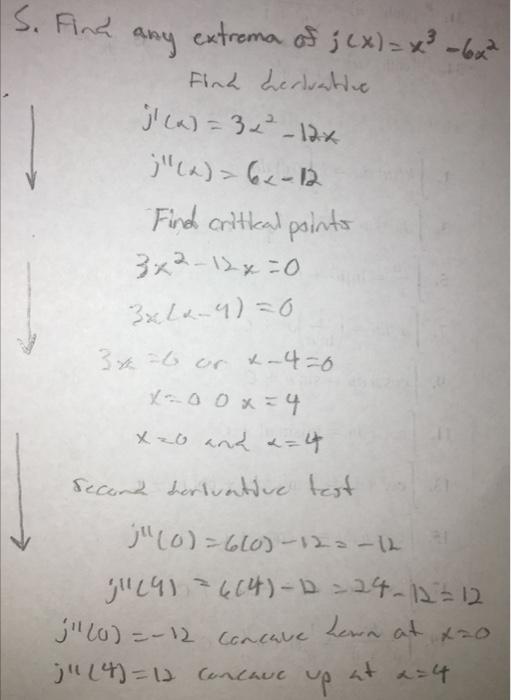 5. Find any extrema of j(x) = x³ - 6x²
Find derivative
j'(x) = 3x² - 12x
j''(x) = 6x - 12
Find critical points
3x² - 12x = 0
3x(x-4) = 0
3x = 0 or x-4=0
x=0 0 x=4
x=0 and x=4
Second derivative test
j''(0) = 6(0) - 12 = -12
j''(4) = 6(4) - 12 = 24 - 12 = 12
j''(0) = -12 concave down at x=0
j''(4) = 12 concave up at x=4